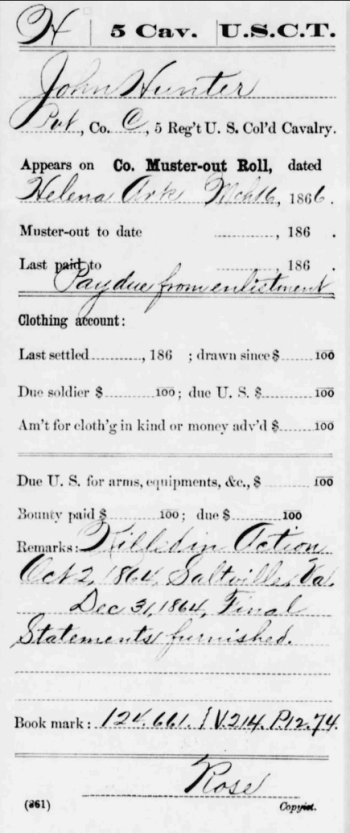 H | 5 Cav. | U.S.C.T.
John Hunter
Pvt., Co. C, 5 Reg't U. S. Col'd Cavalry.
Appears on Co. Muster-out Roll, dated
Helena Ark Mch 16, 1866.
Muster-out to date , 186 .
Last paid to , 186 .
Pay due from enlistment
Clothing account:
Last settled , 186 ; drawn since $ 100
Due soldier $ 100; due U. S. $ 100
Am't for cloth'g in kind or money adv'd $ 100
Due U. S. for arms, equipments, &c., $ 100
Bounty paid $ 100; due $ 100
Remarks: Killed in Action
Oct 2, 1864, Saltville, Va.
Dec 31, 1864, Final
Statements furnished.
Book mark: 124.661. / V.214. P.12.74.
Rose
(361) Copyist.